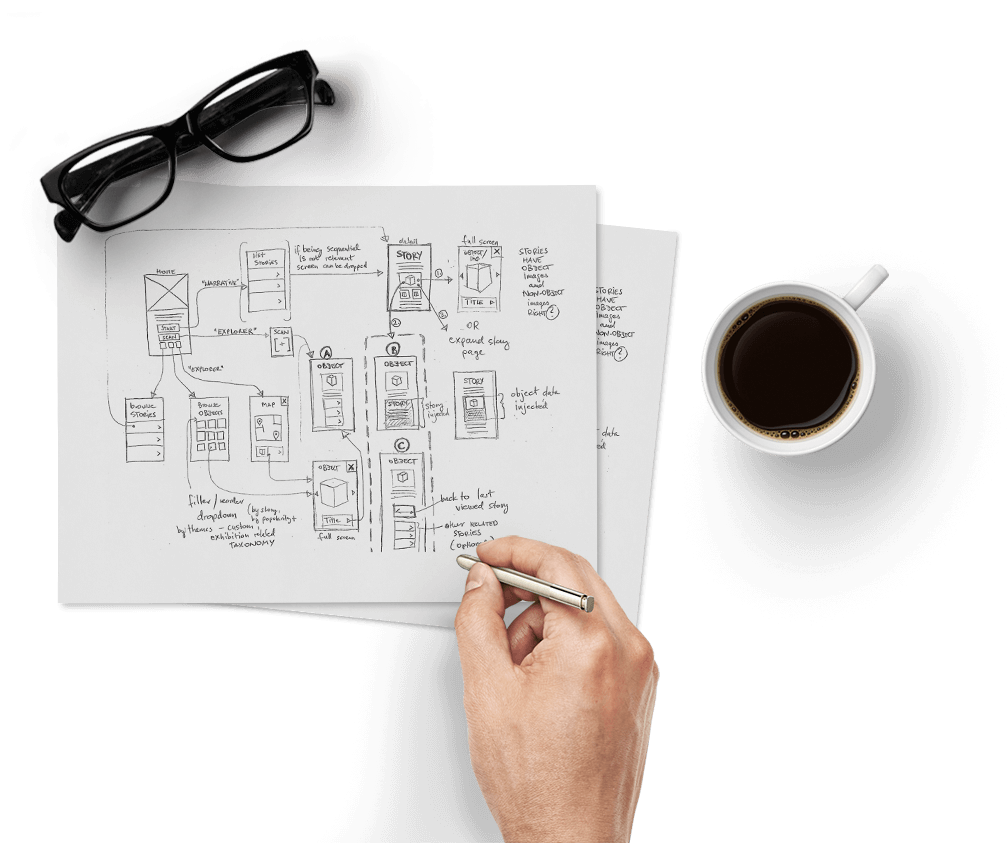 HOME
START
SCAN
"NARRATIVE"
"EXPLORER"
"EXPLORER"
LIST
STORIES
if being sequential
is not relevant
screen can be dropped
SCAN
detail
STORY
1.
2.
2.
full screen
OBJECT/
X
TITLE
OR
expand story
page
STORIES
HAVE
OBJECT
images
and
NON-OBJECT
images
RIGHT?
BROWSE
STORIES
BROWSE
OBJECTS
MAP
X
A
OBJECT
B
OBJECT
STORY
story
injected
STORY
object data
injected
C
OBJECT
back to last
viewed story
OTHER RELATED
STORIES
(optional)
OBJECT
X
Title
full screen
filter / reorder
dropdown (by story,
by popularity+
by themes - custom,
exhibition related
TAXONOMY
STORIES
HAVE
OBJECT
images
and
NON-OBJECT
images
RIGHT?
data